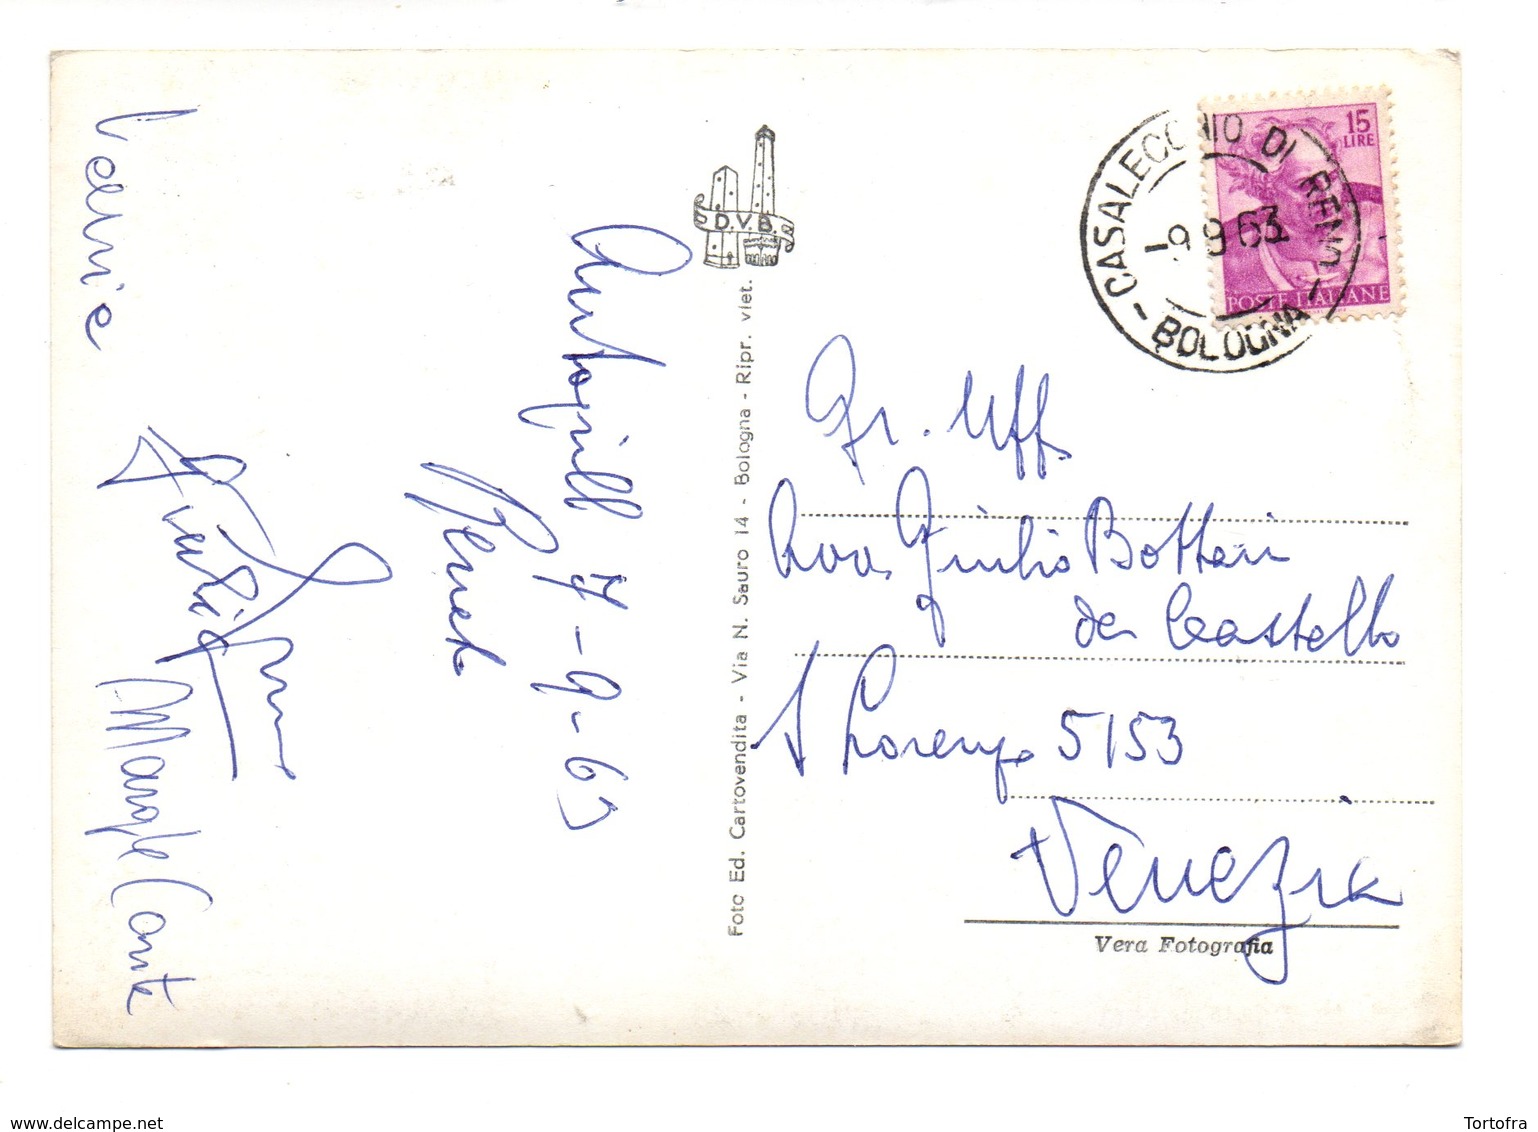 CASALECCHIO DI RENO
-9.9.63
- BOLOGNA -
15
LIRE
POSTE ITALIANE
D.V.B.
Foto Ed. Cartovendita - Via N. Sauro 14 - Bologna - Ripr. viet.
Autogrill 7-9-63
Gr. Uff.
Avv. Giulio Bottari
da Castello
S Lorenzo 5153
Venezia
Vera Fotografia
www.delcampe.net
Tortofra